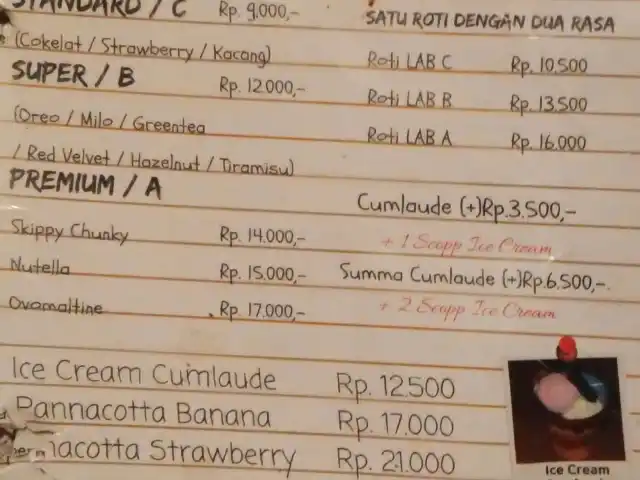 STANDARD / C Rp. 9.000,-
(Cokelat / Strawberry / Kacang)
SUPER / B Rp. 12.000,-
(Oreo / Milo / Greentea
/ Red Velvet / Hazelnut / Tiramisu)
PREMIUM / A
Skippy Chunky Rp. 14.000,-
Nutella Rp. 15.000,-
Ovomaltine Rp. 17.000,-
SATU ROTI DENGAN DUA RASA
Roti LAB C Rp. 10.500
Roti LAB B Rp. 13.500
Roti LAB A Rp. 16.000
Cumlaude (+)Rp.3.500,-
+ 1 Scopp Ice Cream
Summa Cumlaude (+)Rp.6.500,-.
+ 2 Scopp Ice Cream
Ice Cream Cumlaude Rp. 12.500
Pannacotta Banana Rp. 17.000
nacotta Strawberry Rp. 21.000
Ice Cream